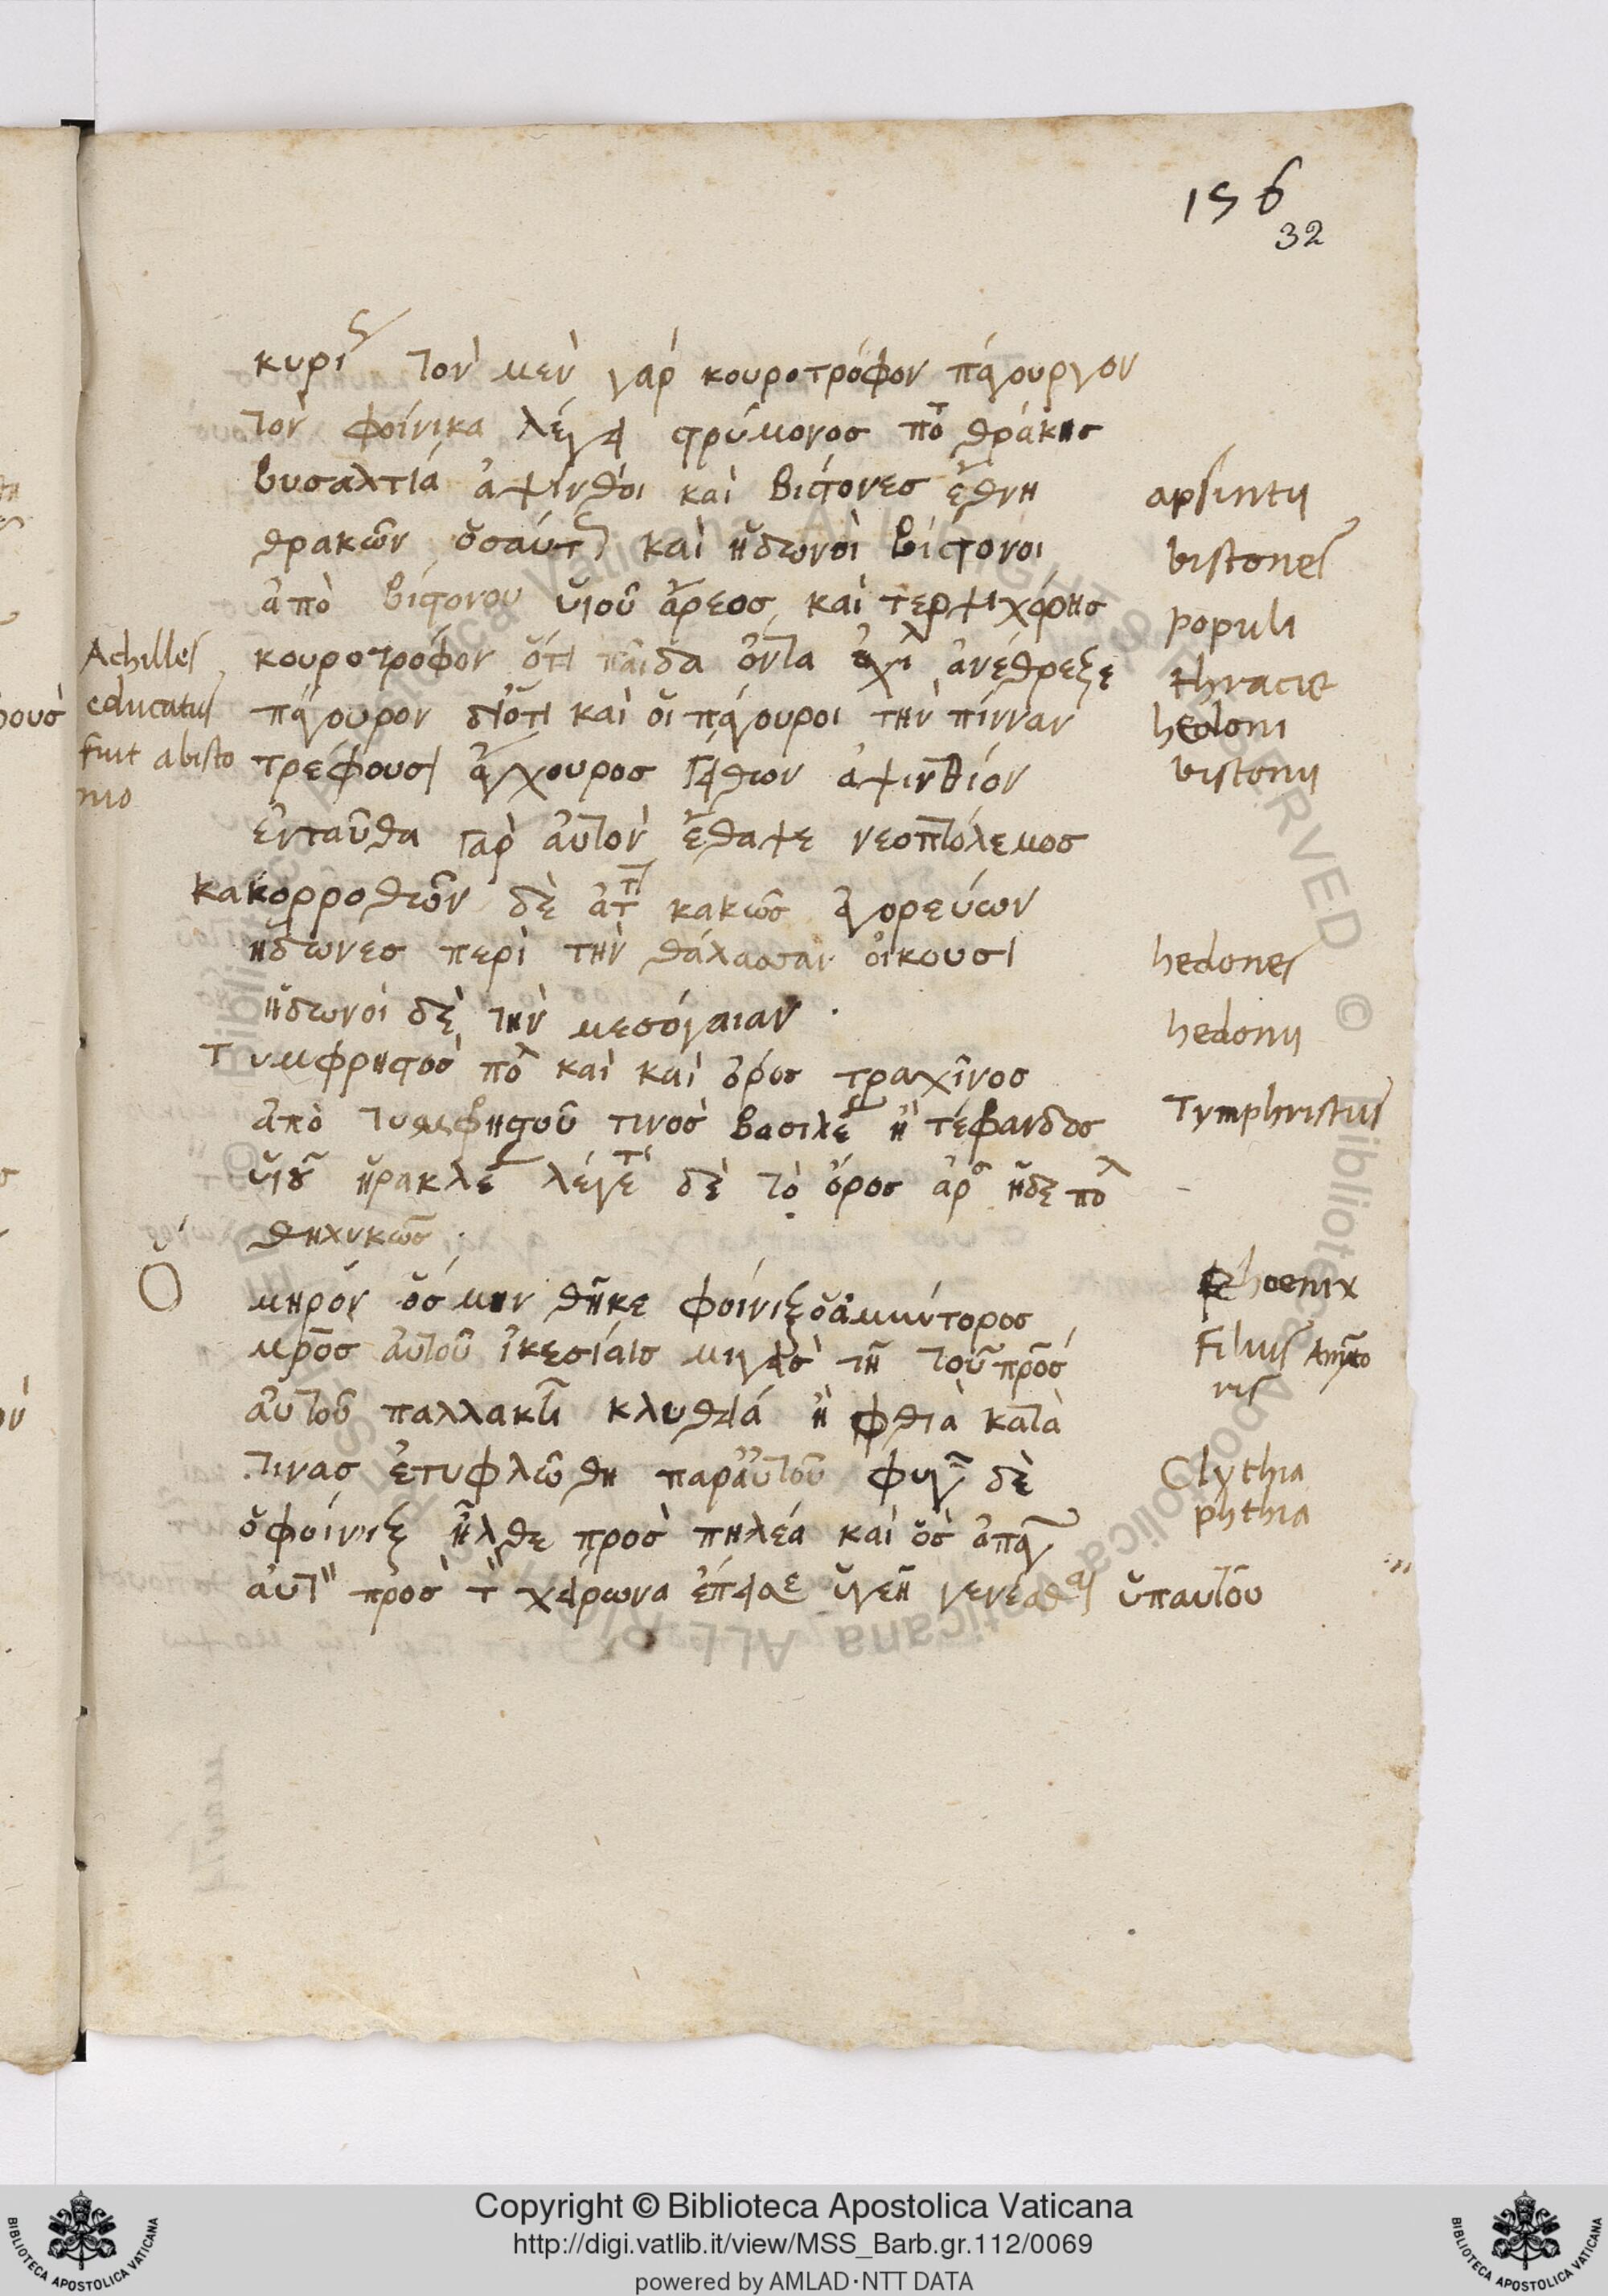 156
32
κυρί τὸν μὲν γὰρ κουροτρόφον πάγουργον
τὸν φοίνικα λέγει στρύμονος πό θράκης
βυσαλτία ἀψίνθιοι καὶ βίστονες ἔθνη
θρακῶν ὁσαύτ καὶ ἠδωνοὶ βίστονοι
ἀπὸ βίστονου ὑιοῦ ἄρεος καὶ τερψιχόρης
κουροτρόφον ὅτι παῖδα ὄντα ἀνέθρεξε
πάγουρον διότι καὶ ὁι πάγουροι τὴν πίνναν
τρέφουσι ἄγχουρος γείθων ἀψινθίον
ἐνταῦθα γὰρ ἀυτὸν ἔθαψε νεοπτόλεμος
κακορροθῶν δὲ κακῶς ἀγορεύων
ἠδῶνες περὶ τὴν θάλασσαν ὀικουσι
ἠδωνοὶ δὲ τὴν μεσόγαιαν .
τυμφρηστὸς πο καὶ καὶ ὄρος τραχῖνος
ἀπὸ τυμφρηστοῦ τινὸς βασιλε ἢ τέφανδος
ὑιοῦ ἡρακλε λέγε δὲ τὸ ὄρος ἀρ ἠδε πο
θηλυκῶς .
Ὁ
μηρον ὁσ μιν θῆκε φοίνιξ ὁ ἀμύντορος
μρος ἀυτοῦ ἱκεσίαις μιγεὶς τῆ τοῦ προς
ἀυτοῦ παλλακτι κλυθεία ἢ φθία κατὰ
τινας ἐτυφλώθη παρ ἀυτοῦ φυγ δὲ
ὁ φοίνιξ ἦλθε προς πηλέα καὶ ὃς ἀπαγ
ἀυτ προς τ χείρωνα ἔπεισε ὑγιῆ γενέσθαι ὑπ αυτοῦ
Achilles
educatus
fuit abisto
nio
apsintij
bistones
populi
thracie
hedoni
bistonij
hedones
hedonij
Tymphristus
Phoenix
filius Amynto
ris
Clythia
phthia
Copyright © Biblioteca Apostolica Vaticana
http://digi.vatlib.it/view/MSS_Barb.gr.112/0069
powered by AMLAD·NTT DATA
BIBLIOTECA APOSTOLICA VATICANA
BIBLIOTECA APOSTOLICA VATICANA